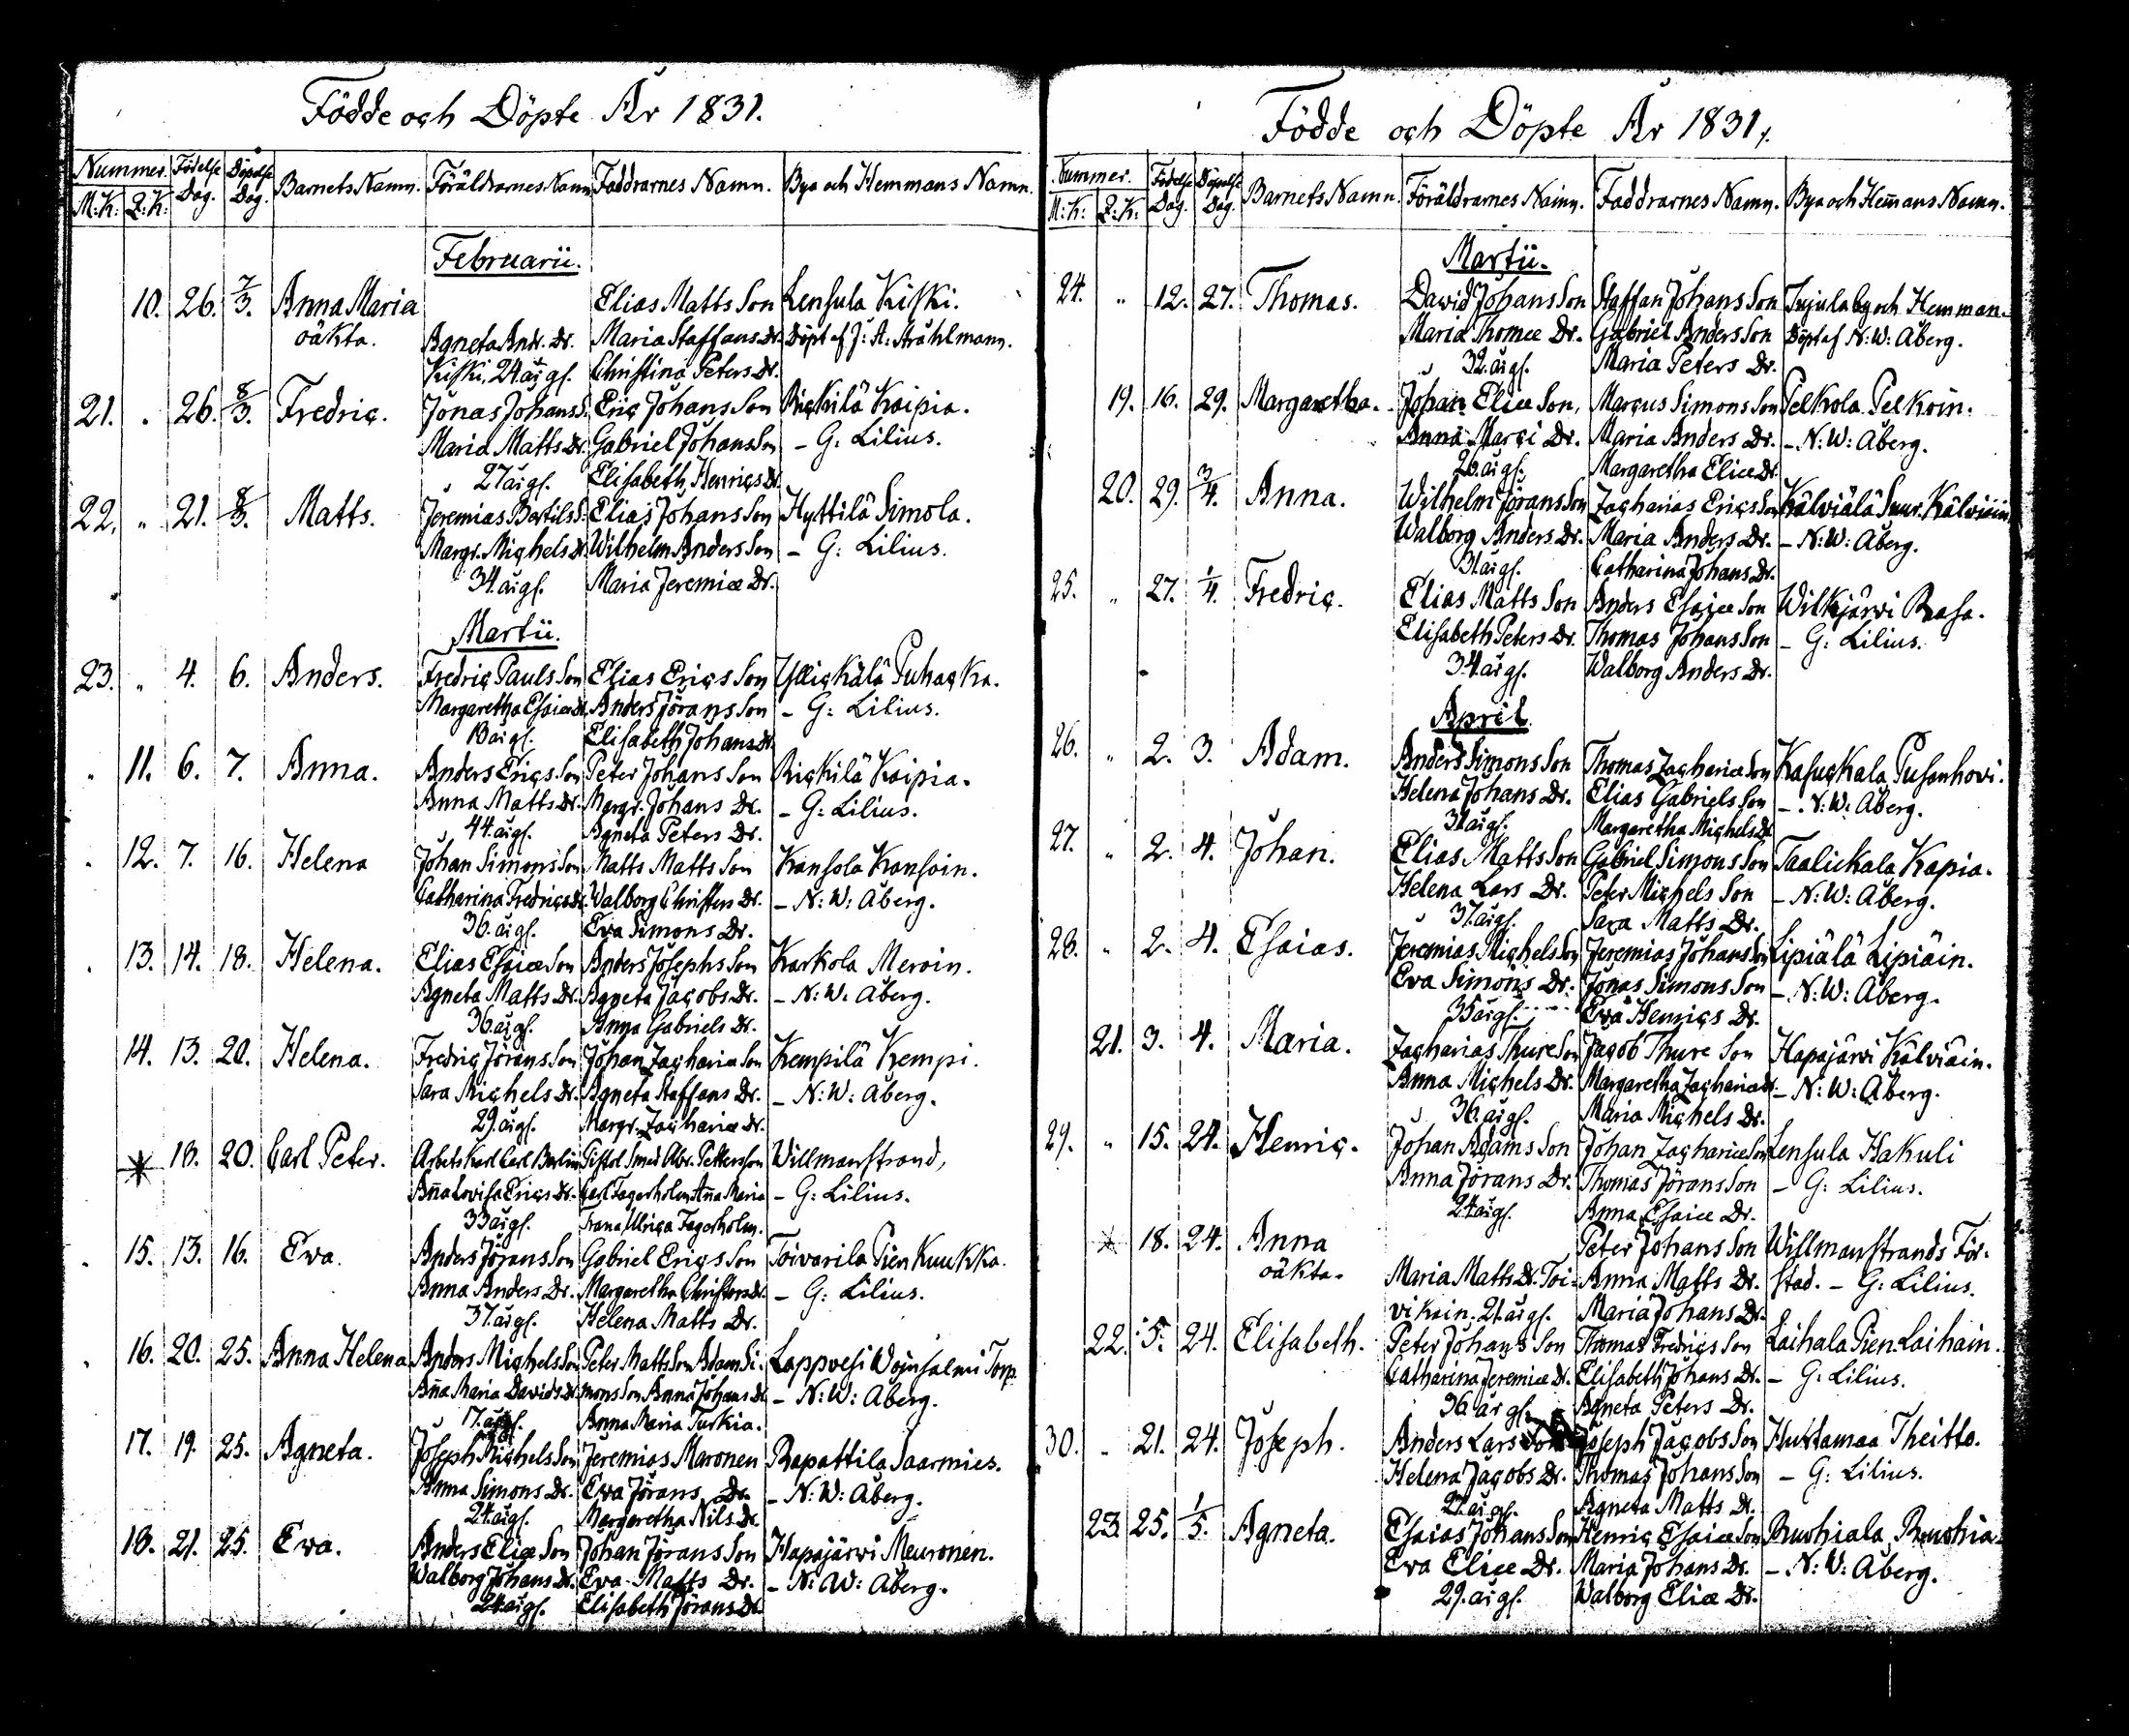 Födde och Döpte År 1831.
Nummer. Födelse Dag. Döpelse Dag. Barnets Namn. Föräldrarnes Namn Faddrarnes Namn. Bya och Hemmans Namn.
M:K: Q:K:
Februarii.
10. 26. 7/3. Anna Maria Elias Matts Son Lensula Kiski.
oäkta. Agneta Andr. Dr. Maria Staffans Dr. Döpt af J: A: Stråhlmann.
Kiski, 24 år gl. Christina Peters Dr.
21. . 26. 8/3. Fredric. Jonas Johans S. Eric Johans Son Rickilä Kaipia.
Maria Matts Dr. Gabriel Johans Son - G: Lilius.
27 år gl. Elisabeth Henrics Dr
22. " 21. 8/3. Matts. Jeremias Bertils S. Elias Johans Son Hyttilä Simola.
Margr. Michels Dr. Wilhelm Anders Son - G: Lilius.
34. år gl. Maria Jeremiæ Dr.
Martii.
23. " 4. 6. Anders. Fredric Pauls Son Elias Erics Son Yllickälä Puhacka.
Margaretha Esaiæ Dr. Anders Jörans Son - G: Lilius.
år gl. Elisabeth Johans Dr
. 11. 6. 7. Anna. Anders Erics Son Peter Johans Son Rickilä Kaipia.
Anna Matts Dr. Margr. Johans Dr. - G: Lilius.
44 år gl. Agneta Peters Dr.
. 12. 7. 16. Helena Johan Simons Son Matts Matts Son Kansola Kansoin.
Catharina Fredrics Dr. Walborg Christers Dr. - N: W: Åberg.
36. år gl. Eva Simons Dr.
. 13. 14. 18. Helena. Elias Esaiæ Son Anders Josephs Son Karkola Meroin.
Agneta Matts Dr. Agneta Jacobs Dr. - N: W: Åberg.
36. år gl. Anna Gabriels Dr.
14. 13. 20. Helena. Fredric Jörans Son Johan Zachariæ Son Kempilä Kempi.
Sara Michels Dr. Agneta Staffans Dr. - N: W: Åberg.
29. år gl. Margr. Zachariæ Dr.
* 18. 20. Carl Peter. Arbets Karl Carl Berlin Pistol Smed Abr. Pettersson Willmanstrand,
Aña Lovisa Erics Dr. Carl Fagerholm Aña Maria - G: Lilius.
33 år gl. Ulrica Fagerholm.
. 15. 13. 16. Eva. Anders Jörans Son Gabriel Erics Son Toivarila Pien Kuukka.
Anna Anders Dr. Margaretha Christers Dr. - G: Lilius.
37. år gl. Helena Matts Dr.
. 16. 20. 25. Anna Helena Anders Michels Son Peter Matts Son Adam Si- Lappvesi Wojnsalmi Torp.
Aña Maria Davids Dr mons Son Anna Johans Dr - N: W: Åberg.
17. år gl. Anna Maria Turkia.
17. 19. 25. Agneta. Joseph Michels Son Jeremias Maronen Rapattila Saarmies.
Anna Simons Dr. Eva Jörans Dr. - N: W: Åberg.
24 år gl. Margaretha Nils Dr
18. 21. 25. Eva. Anders Eliæ Son Johan Jörans Son Hapajärvi Meuronen.
Walborg Johans Dr. Eva Matts Dr. - N: W: Åberg.
24 år gl. Elisabeth Jörans Dr
Födde och Döpte År 1831.
Nummer. Födelse Dag. Döpelse Dag. Barnets Namn. Föräldrarnes Namn. Faddrarnes Namn. Bya och Hem̄ans Namn.
M:K: Q:K:
Martii.
24. " 12. 27. Thomas. David Johans Son Staffan Johans Son Jujula by och Hemman.
Maria Thomæ Dr. Gabriel Anders Son Döpt af N: W: Åberg.
32. år gl. Maria Peters Dr.
19. 16. 29. Margaretha. Johan Eliæ Son, Marcus Simons Son Pelkola Pelkoin.
Anna Marci Dr. Maria Anders Dr. - N: W: Åberg.
26 år gl. Margaretha Eliæ Dr
20. 29. 3/4. Anna. Wilhelm Jörans Son Zacharias Erics Son Kälviälä Suur. Kälviäin
Walborg Anders Dr. Maria Anders Dr. - N: W: Åberg.
31. år gl. Catharina Johans Dr.
25. " 27. 1/4. Fredric. Elias Matts Son Anders Esaiæ Son Wilkjärvi Rasa.
Elisabeth Peters Dr. Thomas Johans Son - G: Lilius.
34. år gl. Walborg Anders Dr.
April.
26. " 2. 3. Adam. Anders Simons Son Thomas Zachariæ Son Kasuckala Pusenhovi.
Helena Johans Dr. Elias Gabriels Son - N: W: Åberg.
31 år gl. Margaretha Michels Dr
27. " 2. 4. Johan. Elias Matts Son Gabriel Simons Son Taalickala Kapia.
Helena Lars Dr. Peter Michels Son - N: W: Åberg.
37. år gl. Sara Matts Dr.
28. " 2. 4. Esaias. Jeremias Michels Son Jeremias Johans Son Lipiälä Lipiäin.
Eva Simons Dr. Jonas Simons Son - N: W: Åberg.
35 år gl. Eva Henrics Dr.
21. 3. 4. Maria. Zacharias Thure Son Jacob Thure Son Hapajärvi Kälviäin.
Anna Michels Dr. Margaretha Zachariæ Dr. - N: W: Åberg.
36. år gl. Maria Michels Dr.
29. " 15. 24. Henric. Johan Adams Son Johan Zachariæ Son Lensula Hakuli
Anna Jörans Dr. Thomas Jörans Son - G: Lilius.
24 år gl. Anna Esaiæ Dr.
* 18. 24. Anna Peter Johans Son Willmanstrands För-
oäkta. Maria Matts Dr. Toi- Anna Matts Dr. stad. - G: Lilius.
vikain. 21. år gl. Maria Johans Dr.
22. 5. 24. Elisabeth. Peter Johans Son Thomas Fredrics Son Laihala Pien Laihain.
Catharina Jeremiæ Dr. Elisabeth Johans Dr. - G: Lilius.
36. år gl. Agneta Peters Dr.
30. " 21. 24. Joseph. Anders Lars Son Joseph Jacobs Son Huttamaa Theitto.
Helena Jacobs Dr. Thomas Johans Son - G: Lilius.
27. år gl. Agneta Matts Dr.
23. 25. 1/5. Agneta. Esaias Johans Son Henric Esaiæ Son Ruohiala Ruohia
Eva Eliæ Dr. Maria Johans Dr. - N: W: Åberg.
29. år gl. Walborg Eliæ Dr.